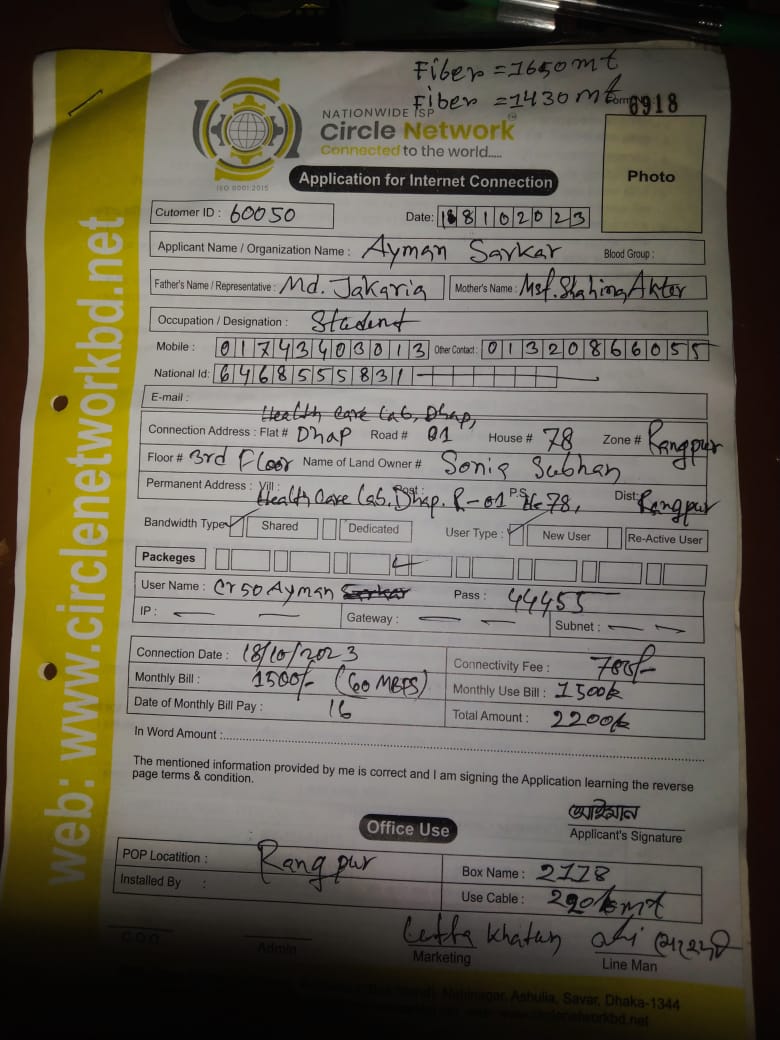 Fiber = 1650mt
Fiber = 1430mt
6918
NATIONWIDE ISP
Circle Network
Connected to the world.....
ISO 9001:2015
Application for Internet Connection
Photo
Cutomer ID : 60050
Date: 18102023
Applicant Name / Organization Name : Ayman Sarkar Blood Group :
Father's Name / Representative : Md. Jakaria Mother's Name : Mst. Shahina Akter
Occupation / Designation : Student
Mobile : 01743403013 Other Contact : 01320866055
National Id: 6468555831
E-mail :
Health Care Lab, Dhap,
Connection Address : Flat # Dhap Road # 01 House # 78 Zone # Rangpur
Floor # 3rd Floor Name of Land Owner # Sonia Subhan
Permanent Address : Vill : Health Care Lab. Dhap. Post : R-01 P.S H-78, Dist: Rangpur
Bandwidth Type Shared Dedicated User Type : New User Re-Active User
Packeges
User Name : Cr50Ayman Sarkar Pass : 44455
IP : Gateway : Subnet :
Connection Date : 18/10/2023 Connectivity Fee : 700/-
Monthly Bill : 1500/- (60 MBPS) Monthly Use Bill : 1500tk
Date of Monthly Bill Pay : 16 Total Amount : 2200tk
In Word Amount :
The mentioned information provided by me is correct and I am signing the Application learning the reverse
page terms & condition.
আইমান
Applicant's Signature
Office Use
POP Locatition : Rangpur Box Name : 2118
Installed By : Use Cable :
Khatun
C.O.O Admin Marketing Line Man
Nabinagar, Ashulia, Savar, Dhaka-1344
web: www.circlenetworkbd.net